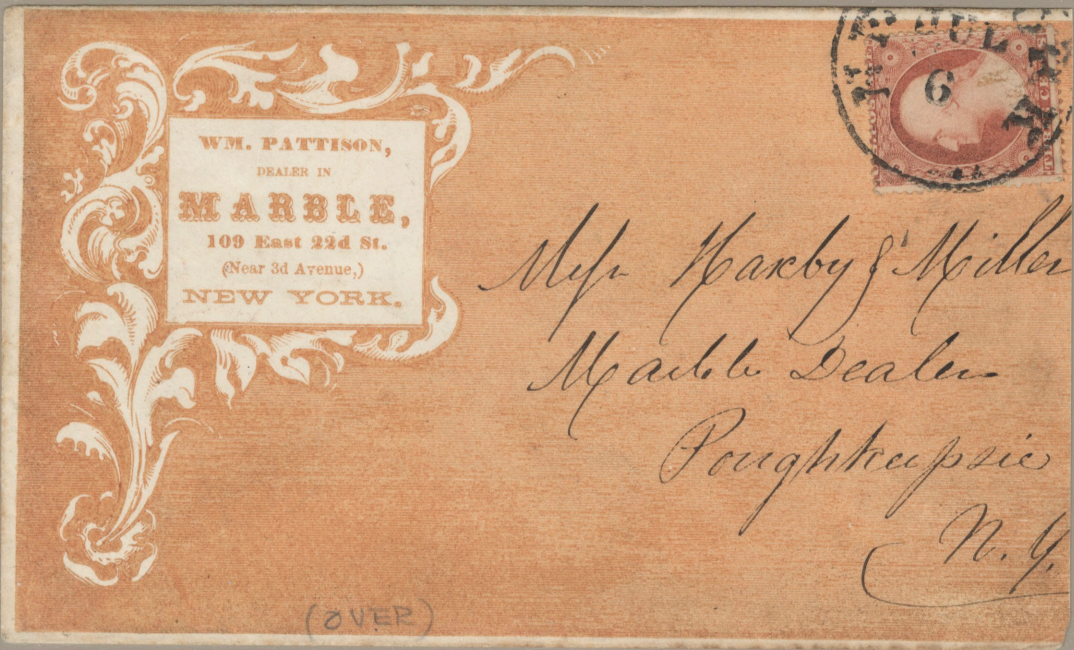 WM. PATTISON,
DEALER IN
MARBLE,
109 East 22d St.
(Near 3d Avenue,)
NEW YORK.
JUL
6
Mess Haxby & Miller
Marble Dealers
Poughkeepsie
N. Y.
(OVER)